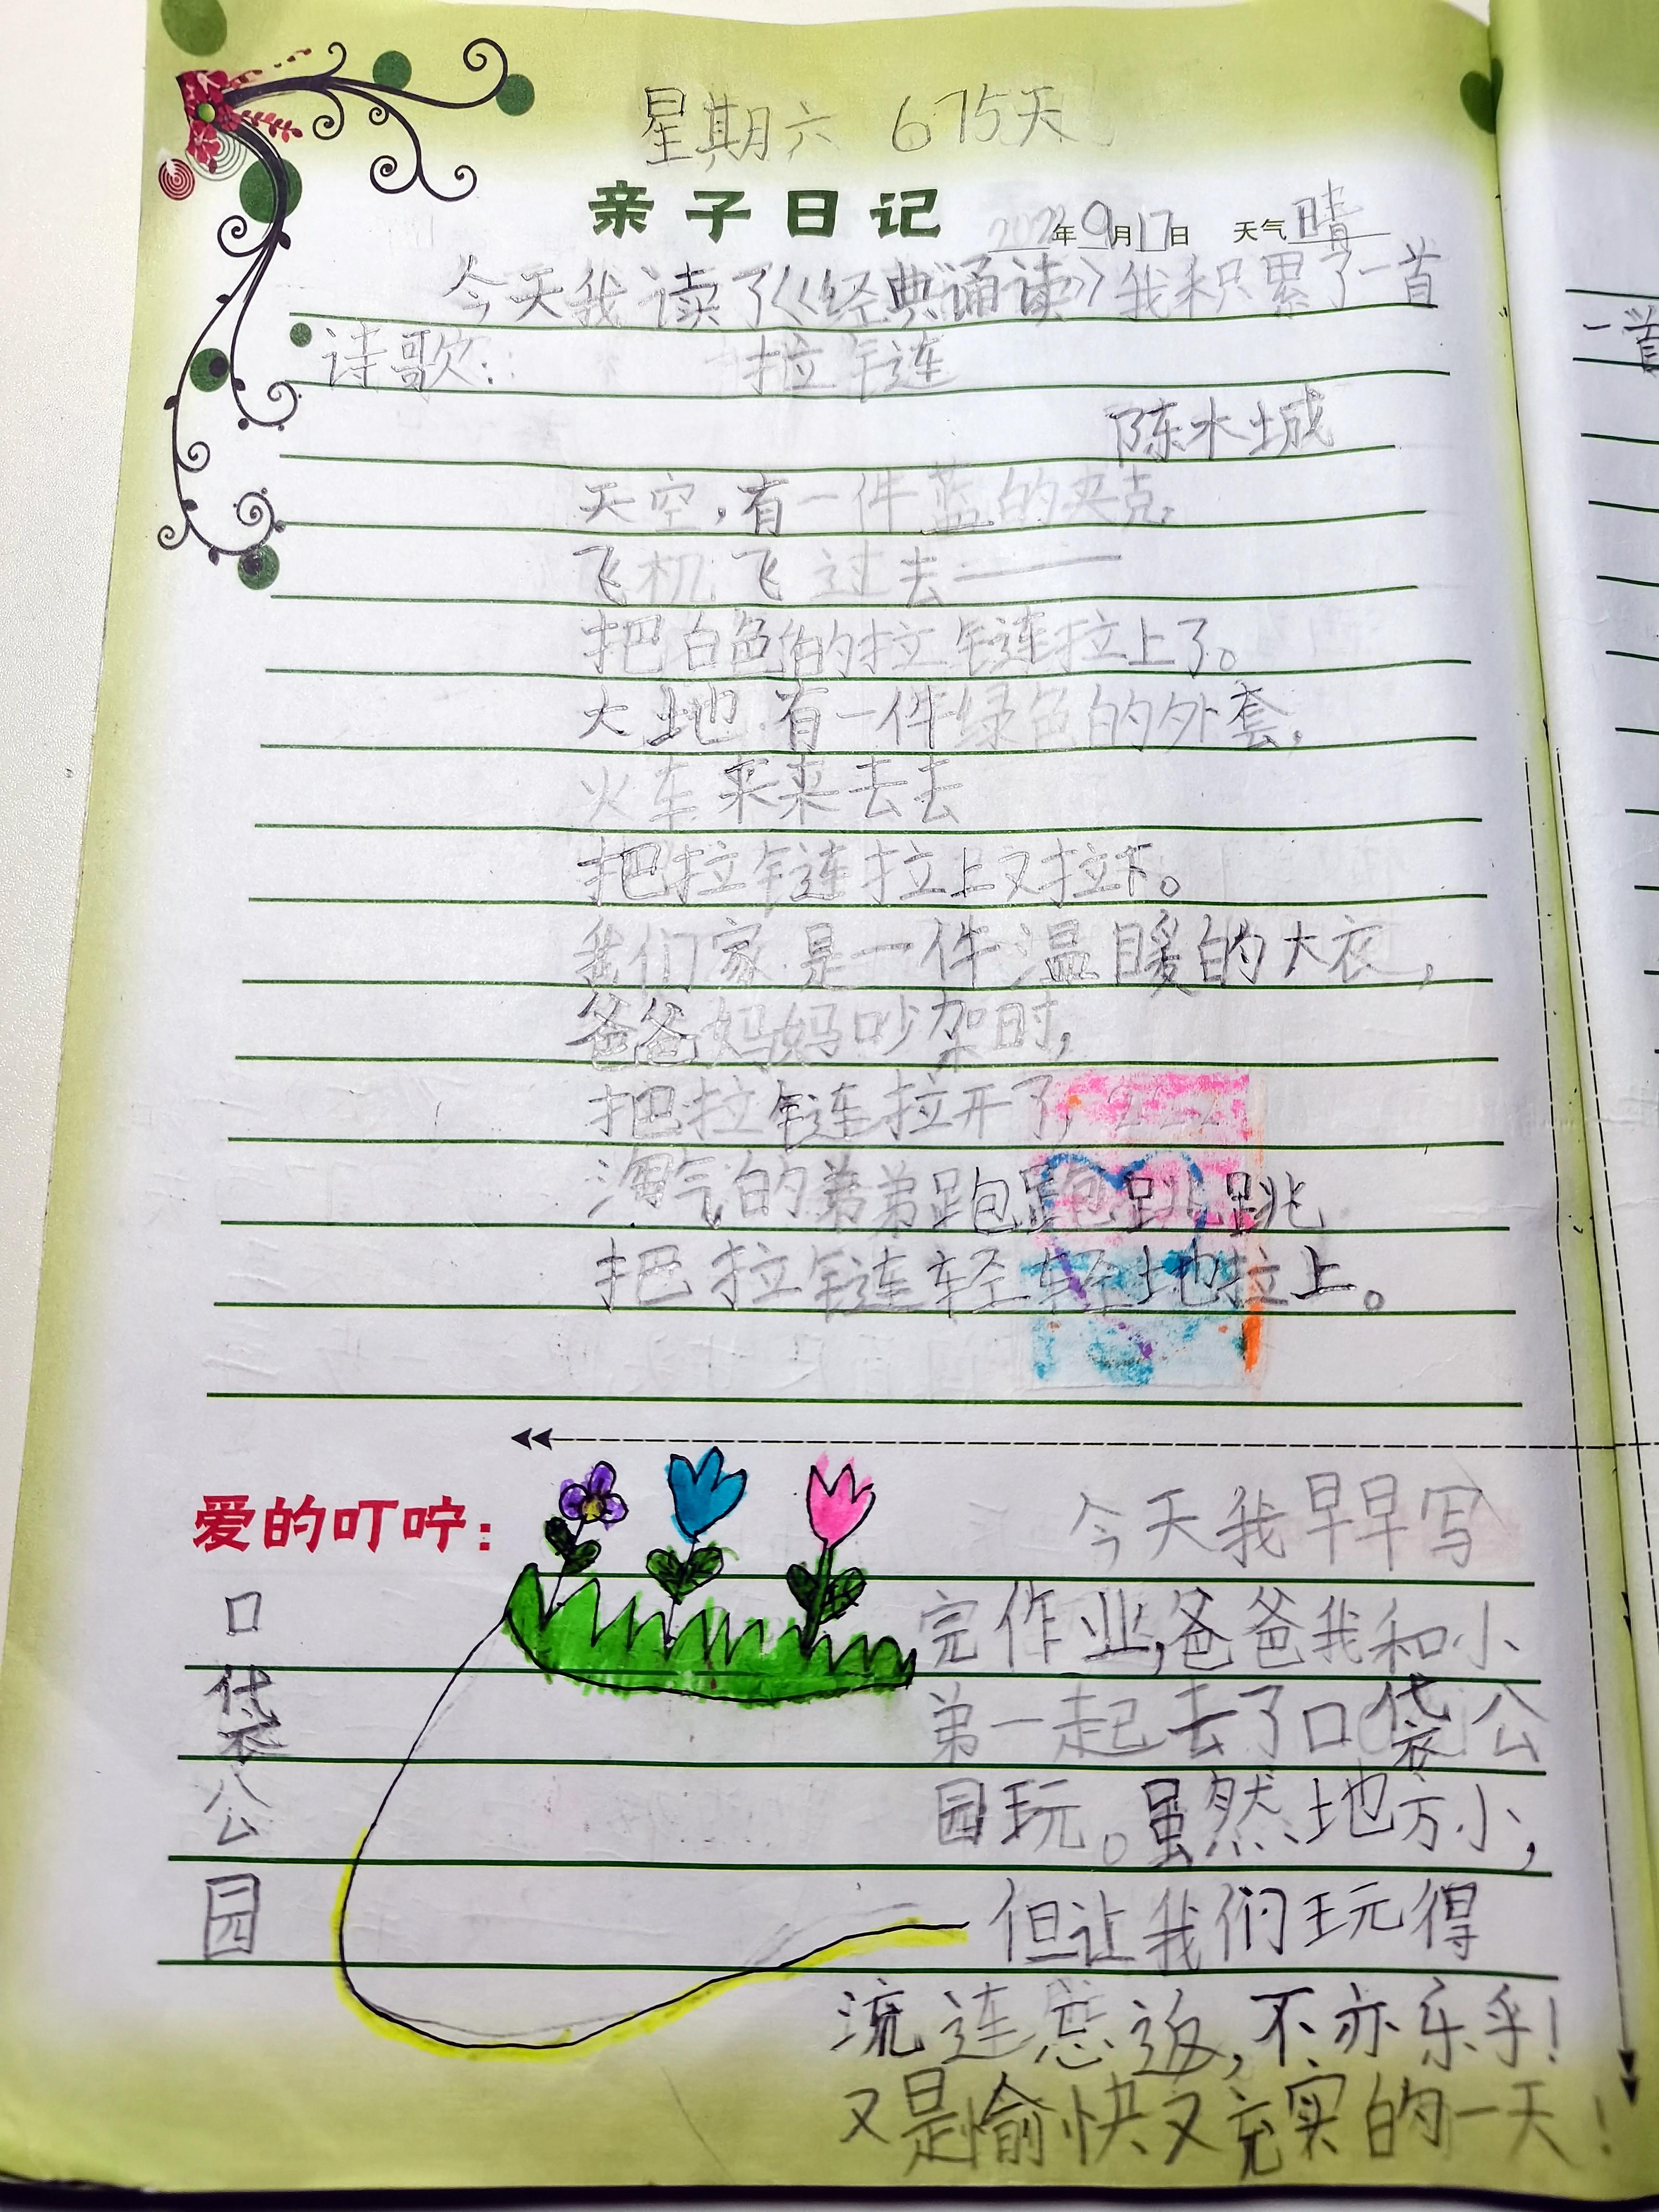 星期六 675天
亲子日记 2022年9月17日 天气晴
今天我读了《经典诵读》我积累了一首
诗歌: 拉链
陈水城
天空,有一件蓝的夹克,
飞机飞过去——
把白色的拉链拉上了。
大地有一件绿色的外套,
火车来来去去
把拉链拉上又拉下。
我们家是一件温暖的大衣,
爸爸妈妈吵架时,
把拉链拉开了,
淘气的弟弟跑跑跳跳
把拉链轻轻地拉上。
爱的叮咛:
口袋公园
今天我早早写
完作业,爸爸我和小
弟一起去了口袋公
园玩。虽然地方小,
但让我们玩得
流连忘返,不亦乐乎!
又是愉快又充实的一天!
一首